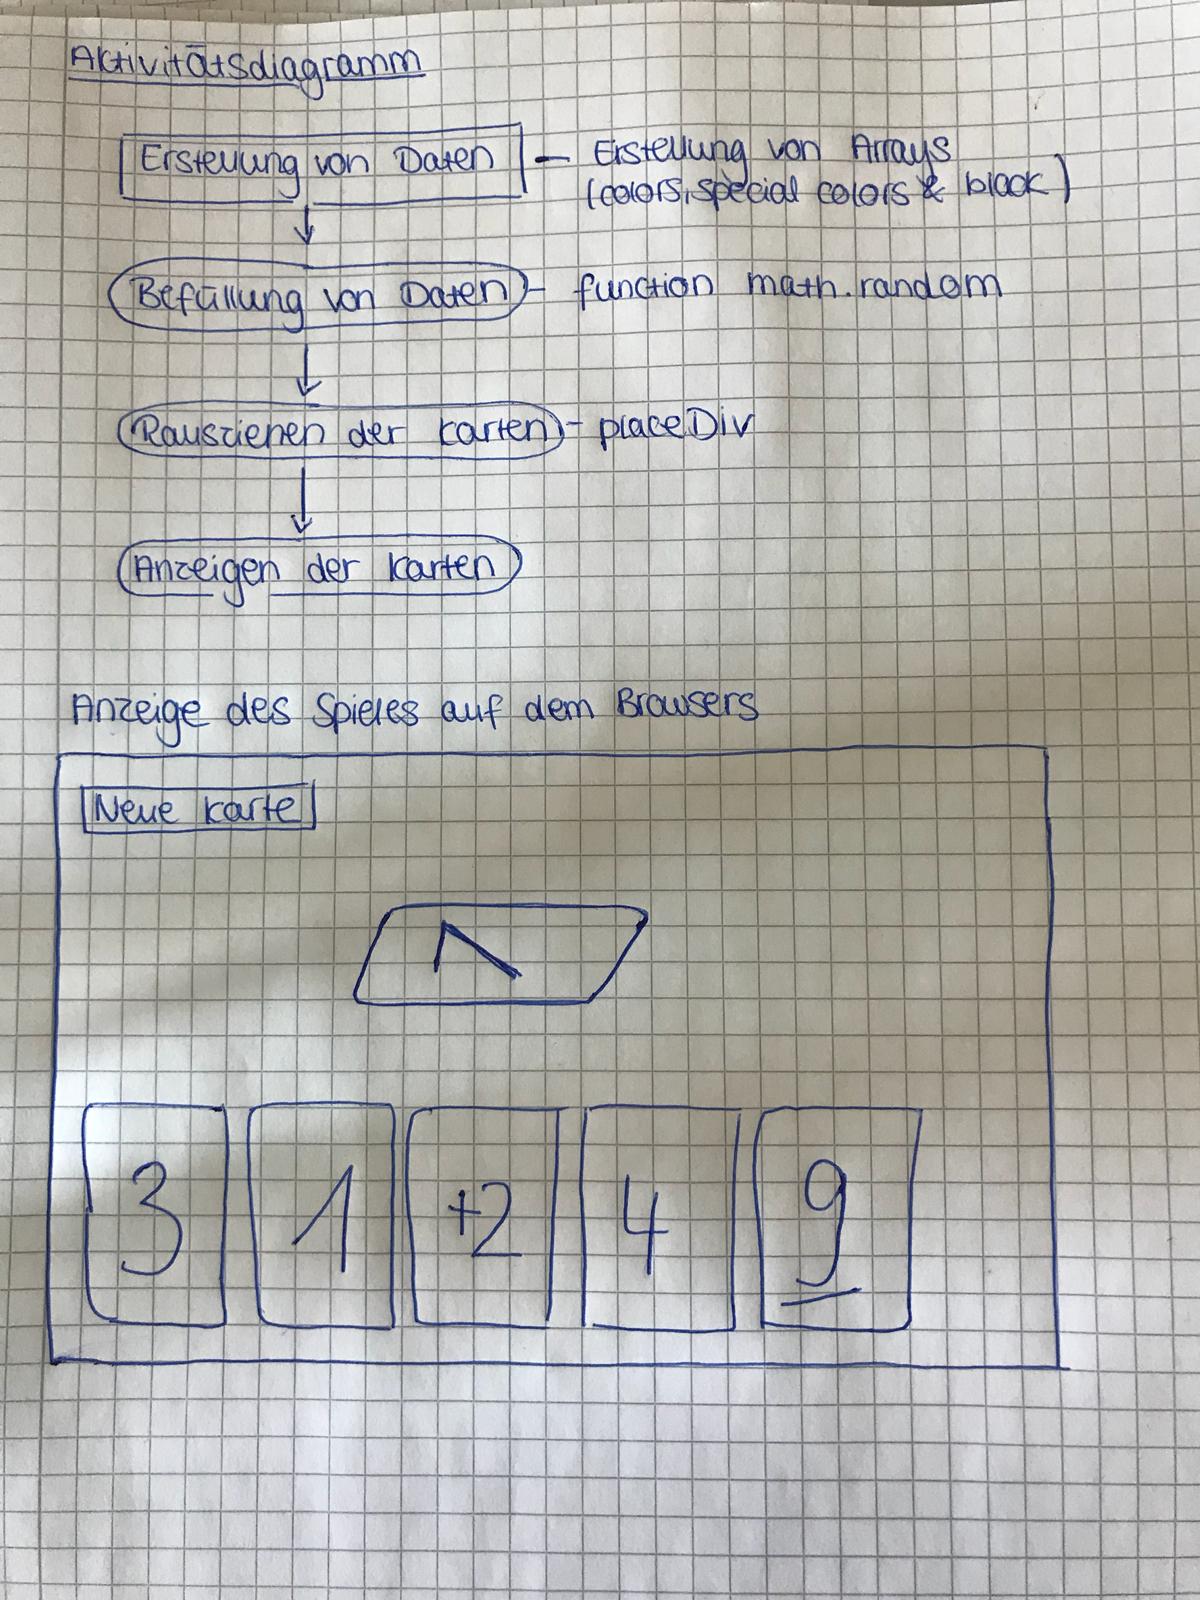 Aktivitätsdiagramm
Erstellung von Daten - Erstellung von Arrays
(colors, special colors & black)
Befüllung von Daten - function math.random
Rausziehen der Karten - placeDiv
Anzeigen der Karten
Anzeige des Spieles auf dem Browsers
Neue Karte
1
3 1 +2 4 9